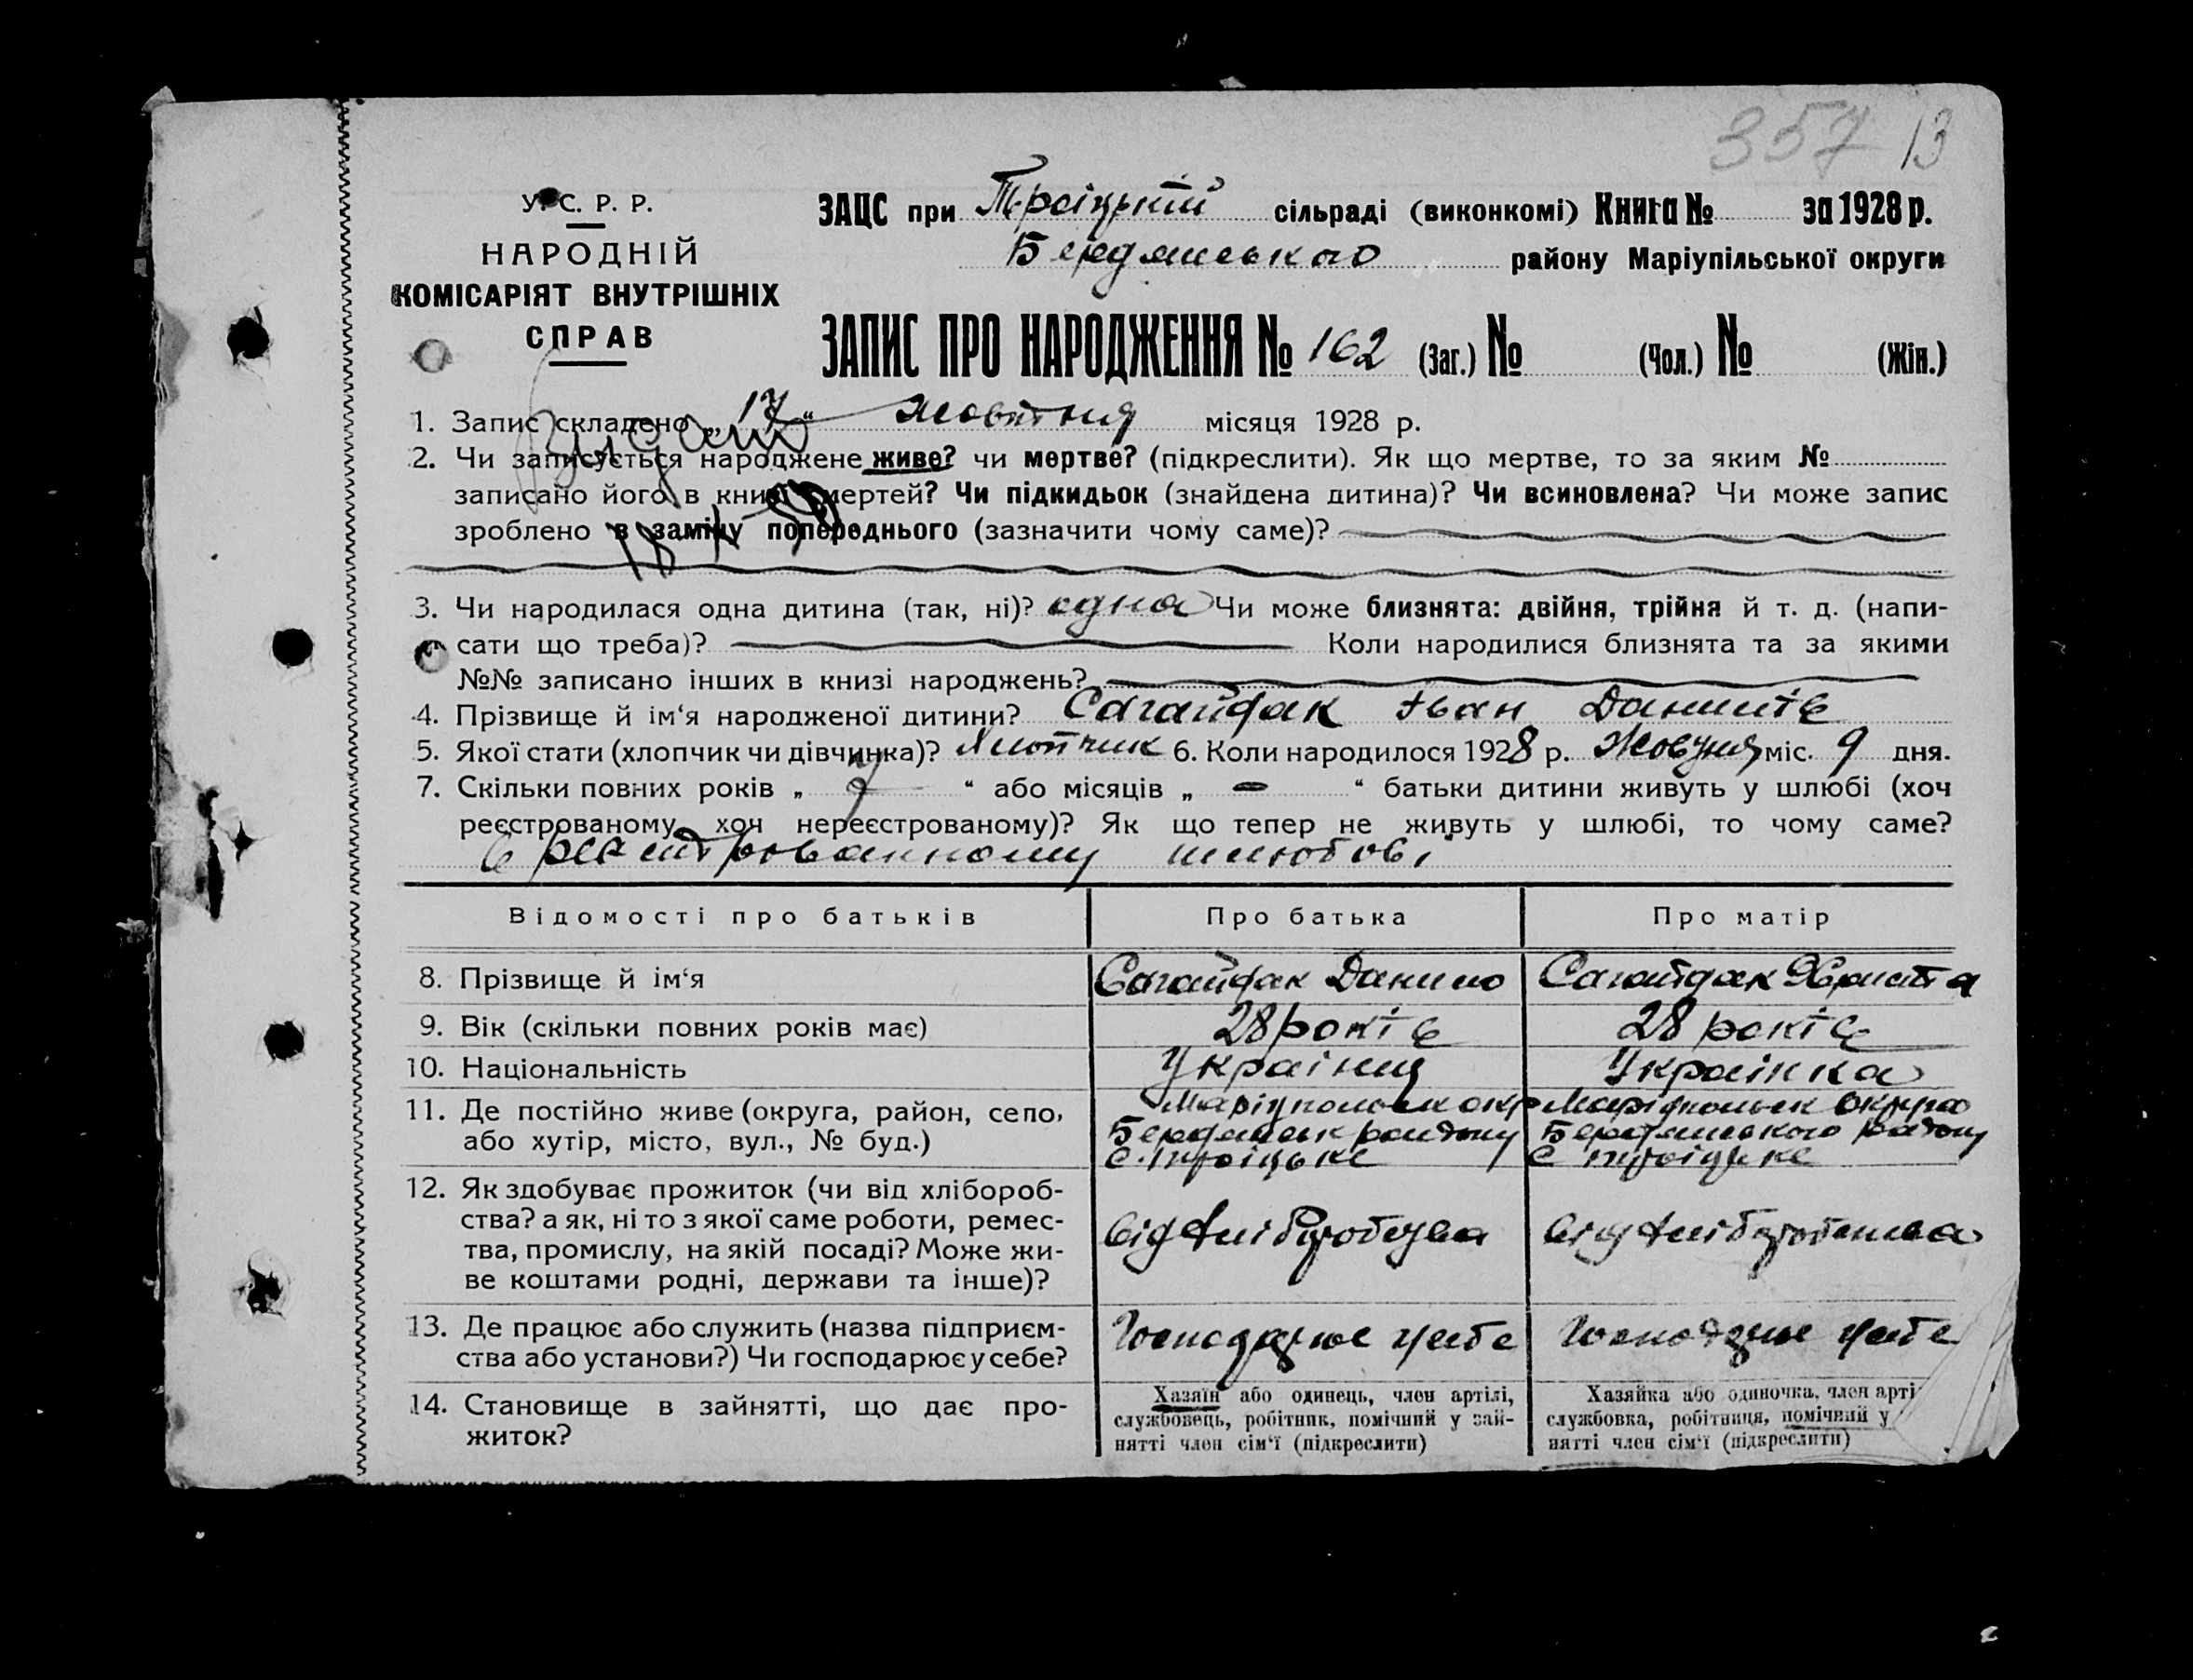 357 13
У. С. Р. Р.
НАРОДНІЙ
КОМІСАРІЯТ ВНУТРІШНІХ
СПРАВ
ЗАЦС при Троіцькій сільраді (виконкомі) Книга № за 1928 р.
Бердянського району Маріупільської округи
ЗАПИС ПРО НАРОДЖЕННЯ № 162 (Заг.) № (Чол.) № (Жін.)
1. Запис складено „ 17 “ жовтня місяця 1928 р.
2. Чи записується народжене живе? чи мертве? (підкреслити). Як що мертве, то за яким №
записано його в книзі смертей? Чи підкидьок (знайдена дитина)? Чи всиновлена? Чи може запис
зроблено в заміну попереднього (зазначити чому саме)?
3. Чи народилася одна дитина (так, ні)? одна Чи може близнята: двійня, трійня й т. д. (напи-
сати що треба)? Коли народилися близнята та за якими
№№ записано інших в книзі народжень?
4. Прізвище й ім‘я народженої дитини? Сагайдак Іван Данилів
5. Якої стати (хлопчик чи дівчинка)? Хлопчик 6. Коли народилося 1928 р. Жовтня міс. 9 дня.
7. Скільки повних років „ 7 “ або місяців „ – “ батьки дитини живуть у шлюбі (хоч
реєстрованому, хоч нереєстрованому)? Як що тепер не живуть у шлюбі, то чому саме?
в регистрованному шлюбові
Відомості про батьків Про батька Про матір
8. Прізвище й ім‘я Сагайдак Данило Сагайдак
9. Вік (скільки повних років має) 28 років 28 років
10. Національність Українец Українка
11. Де постійно живе (округа, район, село,
або хутір, місто, вул., № буд.)
Маріупольск окр Маріупольск округа
Бердянськ району Бердянського району
с. Троіцьке с Троіцьке
12. Як здобуває прожиток (чи від хлібороб-
ства? а як, ні то з якої саме роботи, ремес-
тва, промислу, на якій посаді? Може жи-
ве коштами родні, держави та інше)?
від хліборобства від хліборобства
13. Де працює або служить (назва підприєм-
ства або установи?) Чи господарює у себе?
Господарює у себе Господарює у себе
14. Становище в зайнятті, що дає про-
житок?
Хазяїн або одинець, член артілі,
службовець, робітник, помічний у зай-
нятті член сім‘ї (підкреслити)
Хазяйка або одиночка, член арті
службовка, робітниця, помічний у
нятті член сім‘ї (підкреслити)